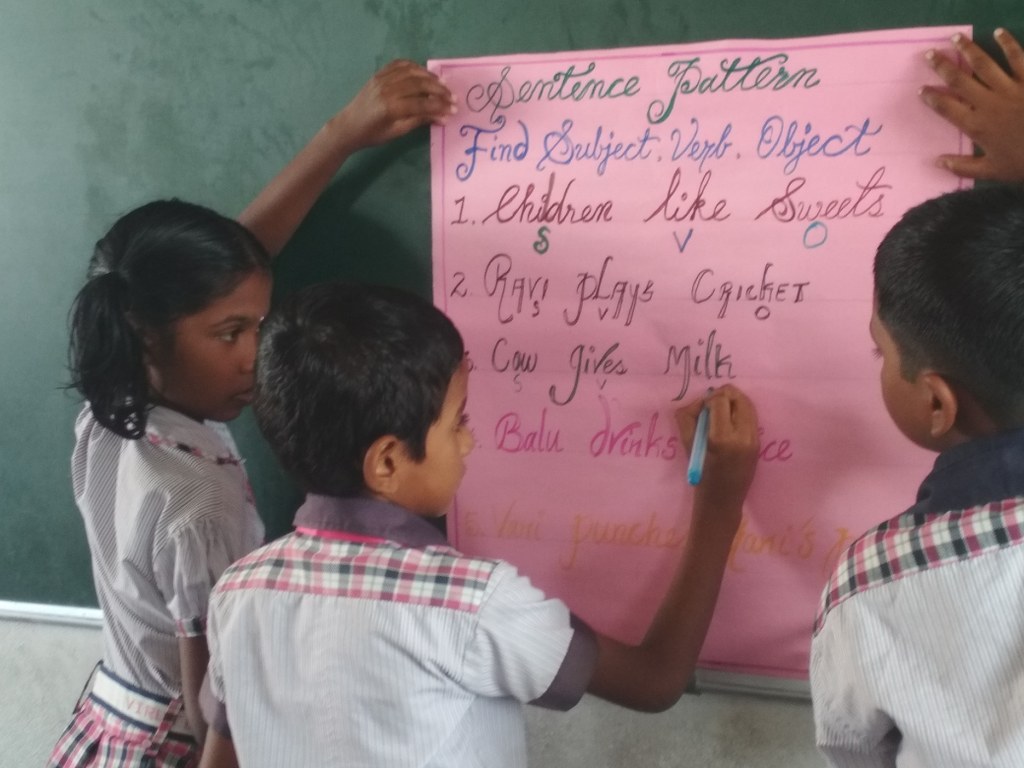 Sentence Pattern
Find Subject. Verb. Object
1. Children like Sweets
S V O
2. Ravi plays Cricket
S V O
Cow gives Milk
S V
Balu drinks
5. punche ani's